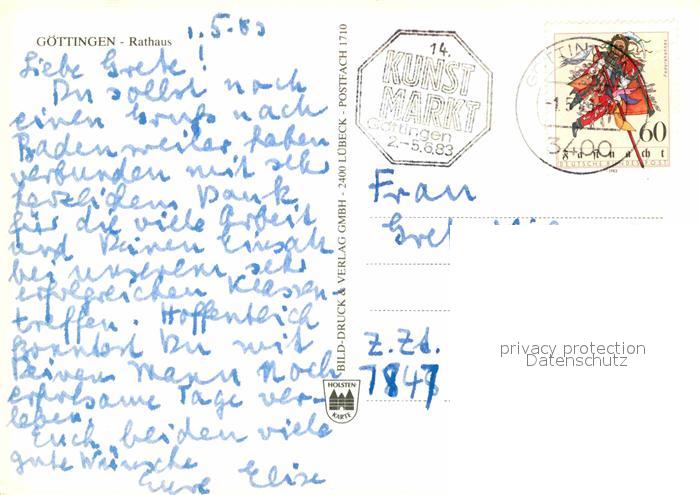 GÖTTINGEN - Rathaus
1.5.83
Liebe Grete!
Du sollst noch
einen Gruß nach
Badenweiler haben
verbunden mit sehr
herzlichem Dank
für die viele Arbeit
und Deinen Einsatz
bei unserem sehr
erfolgreichen Klassen-
treffen. Hoffentlich
konntest Du mit
Deinem Mann noch
erholsame Tage ver-
leben.
Euch beiden viele
gute Wünsche
Eure Elise
BILD-DRUCK & VERLAG GMBH - 2400 LÜBECK - POSTFACH 1710
HOLSTEN
KARTE
14.
KUNST
MARKT
Göttingen
2.-5.6.83
GÖTTINGEN
-1.5.
3400
60
Fastnacht
DEUTSCHE BUNDESPOST
1983
Frau
Gret
z.Zt.
7847
privacy protection
Datenschutz